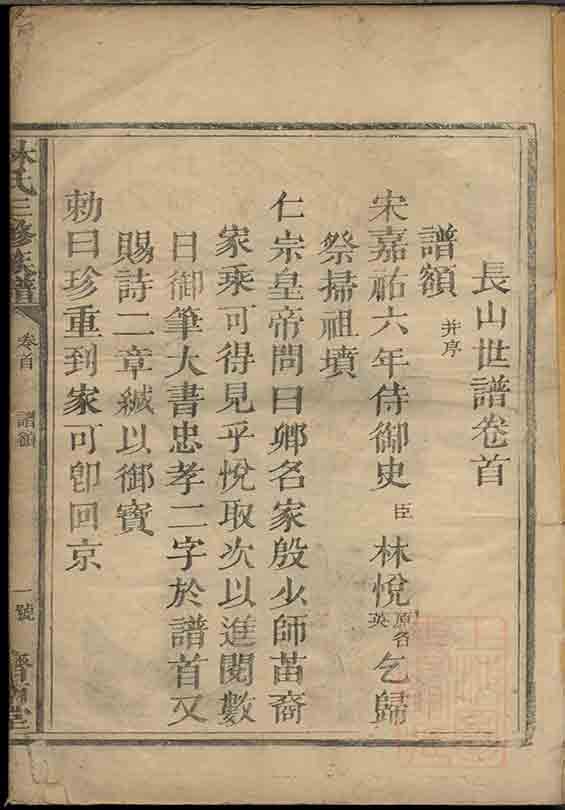 長山世譜卷首
譜額 并序
宋嘉祐六年侍御史臣林悅原名英乞歸
祭掃祖墳
仁宗皇帝問曰卿名家殷少師苗裔
家乘可得見乎悅取次以進閱數
日御筆大書忠孝二字於譜首又
賜詩二章緘以御寶
勅曰珍重到家可卽回京
林氏三修族譜 卷首 譜額 一號